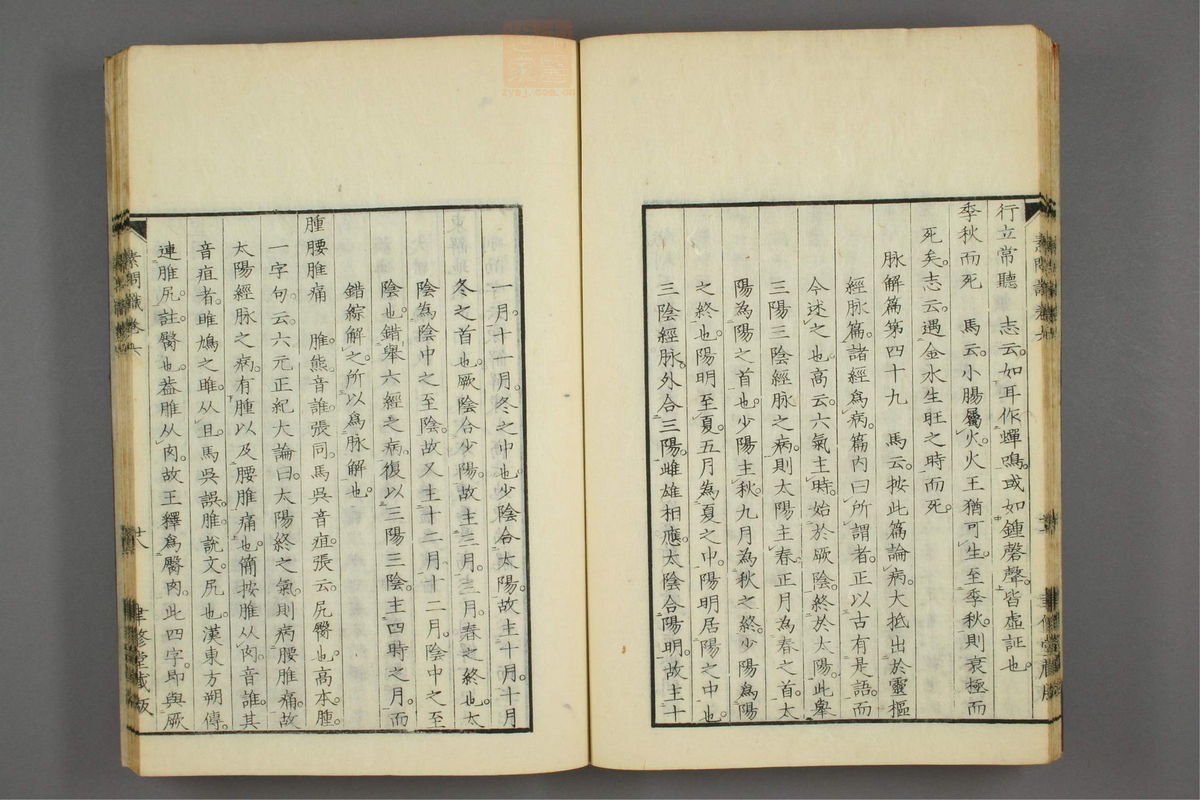 行立常聽　志云如耳作蟬鳴或如鍾磬聲皆虛証也
季秋而死　馬云小腸屬火火王猶可生至季秋則衰極而
死矣志云遇金水生旺之時而死
脉解篇第四十九　馬云按此篇論病大抵出於靈樞
經脉篇諸經爲病篇內曰所謂者正以古有是語而
今述之也高云六氣主時始於厥陰終於太陽此舉
三陽三陰經脉之病則太陽主春正月為春之首太
陽為陽之首也少陽主秋九月為秋之終少陽為陽
之終也陽明主夏五月為夏之中陽明居陽之中也
三陰經脉外合三陽雌雄相應太陰合陽明故主十
一月十一月冬之中也少陰合太陽故主十月十月
冬之首也厥陰合少陽故主三月三月春之終也太
陰為陰中之至陰故又主十二月十二月陰中之至
陰也錯舉六經之病復以三陽三陰主四時之月而
錯綜解之所以爲脉解也
腫腰脽痛　脽熊音誰張同馬吳音疽張云尻臀也高本腫
一字句云六元正紀大論曰太陽終之氣則病腰脽痛故
太陽經脉之病有腫以及腰脽痛也簡按脽从肉音誰其
音疽者雎鳩之雎从且馬吳誤脽說文尻也漢東方朔傳
連脽尻註臀也葢脽从肉故王釋爲臀肉此四字即與厥
素問識卷六
廿八
聿修堂藏版